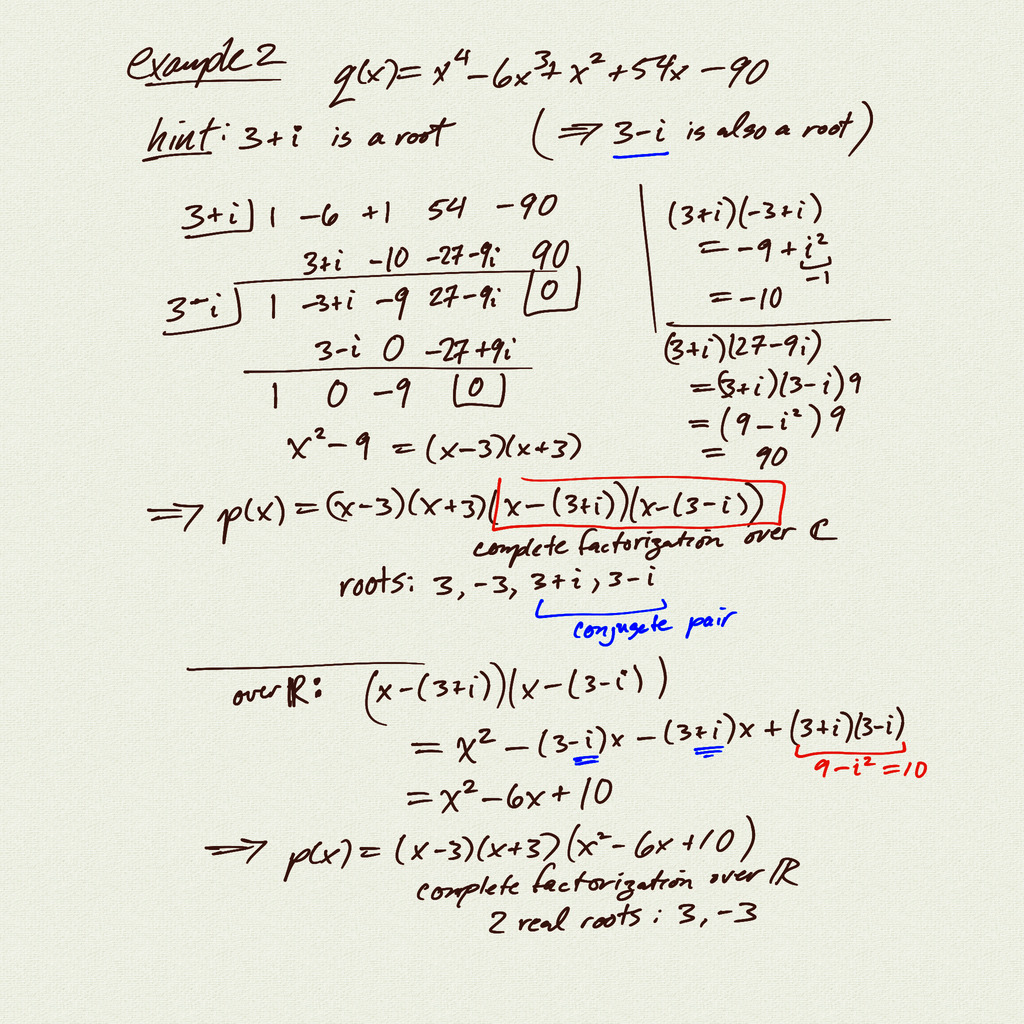 example 2 q(x) = x⁴ - 6x³ + x² + 54x - 90
hint: 3+i is a root (⇒ 3-i is also a root)
3+i | 1 -6 +1 54 -90
3+i -10 -27-9i 90
3-i | 1 -3+i -9 27-9i 0
3-i 0 -27+9i
1 0 -9 0
x² - 9 = (x-3)(x+3)
(3+i)(-3+i)
= -9 + i²
-1
= -10
(3+i)(27-9i)
= (3+i)(3-i)9
= (9-i²)9
= 90
⇒ p(x) = (x-3)(x+3)(x-(3+i))(x-(3-i))
complete factorization over ℂ
roots: 3, -3, 3+i, 3-i
conjugate pair
over ℝ: (x-(3+i))(x-(3-i))
= x² - (3-i)x - (3+i)x + (3+i)(3-i)
9-i² = 10
= x² - 6x + 10
⇒ p(x) = (x-3)(x+3)(x² - 6x + 10)
complete factorization over ℝ
2 real roots: 3, -3